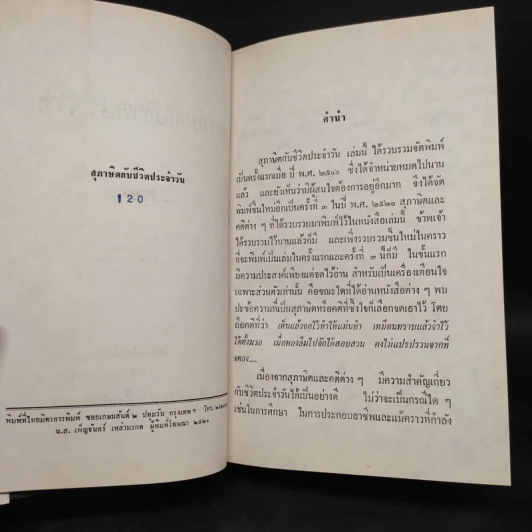 สุภาษิตกับชีวิตประจำวัน
120
พิมพ์ที่ไทยมิตรการพิมพ์ ซอยเกษมสันต์ ๒ ปทุมวัน กรุงเทพฯ โทร.
น.ส. เพ็ญจันทร์ เหล่ามารค ผู้พิมพ์โฆษณา ๒๕๒๐
คำนำ
สุภาษิตกับชีวิตประจำวัน เล่มนี้ ได้รวบรวมจัดพิมพ์
เป็นครั้งแรกเมื่อ ปี พ.ศ. ๒๕๑๖ ซึ่งได้จำหน่ายหมดไปนาน
แล้ว และยังเห็นว่ามีผู้สนใจต้องการอยู่อีกมาก จึงได้จัด
พิมพ์ขึ้นใหม่อีกเป็นครั้งที่ ๓ ในปี พ.ศ. ๒๕๒๐ สุภาษิตและ
คติต่าง ๆ ที่ได้รวบรวมมาพิมพ์ไว้ในหนังสือเล่มนี้ ข้าพเจ้า
ได้รวบรวมไว้นานแล้วก็มี และเพิ่งรวบรวมขึ้นใหม่ในคราว
ที่จะพิมพ์เป็นเล่มในครั้งแรกและครั้งที่ ๓ นี้ก็มี ในชั้นแรก
มีความประสงค์เพียงแต่จดไว้อ่าน สำหรับเป็นเครื่องเตือนใจ
เฉพาะส่วนตัวเท่านั้น คือขณะใดที่ได้อ่านหนังสือต่าง ๆ พบ
ปะข้อความที่เป็นสุภาษิตหรือคติที่ซึ้งใจก็เลือกจดเอาไว้ โดย
ถือคติที่ว่า เห็นแล้วจดไว้ทำให้แม่นยำ เหมือนทราบแล้วจำไว้
ได้ทั้งมวล เมื่อหลงลืมไปจักได้สอบสวน คงไม่แปรปรวนจากที่
จดลง....
เนื่องจากสุภาษิตและคติต่าง ๆ มีความสำคัญเกี่ยว
กับชีวิตประจำวันได้เป็นอย่างดี ไม่ว่าจะเป็นกรณีใด ๆ
เช่นในการศึกษา ในการประกอบอาชีพและแม้คราวที่กำลัง